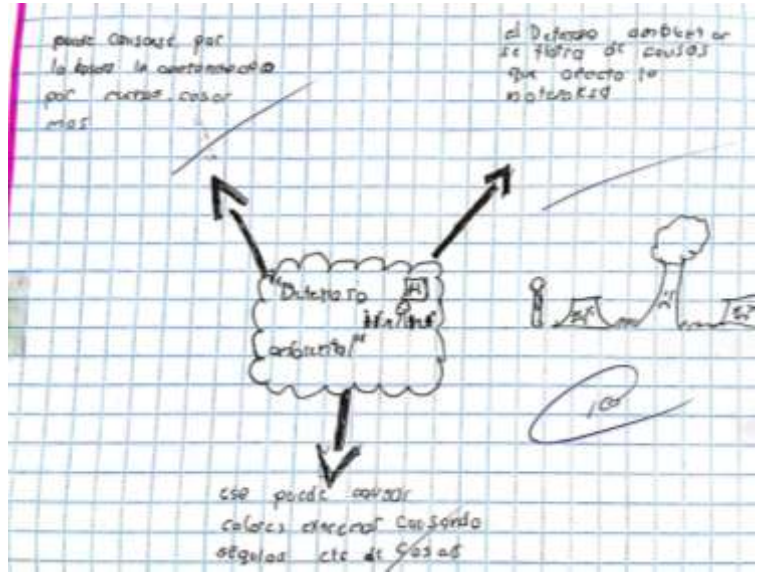 puede causarse por
la basura la contaminacion
por muchas cosas
mas
el Deterioro ambiental
se trata de causas
que afecta la
"Deterioro
ambiental"
100
ese puede causar
calores extremos causando
sequias etc de cosas